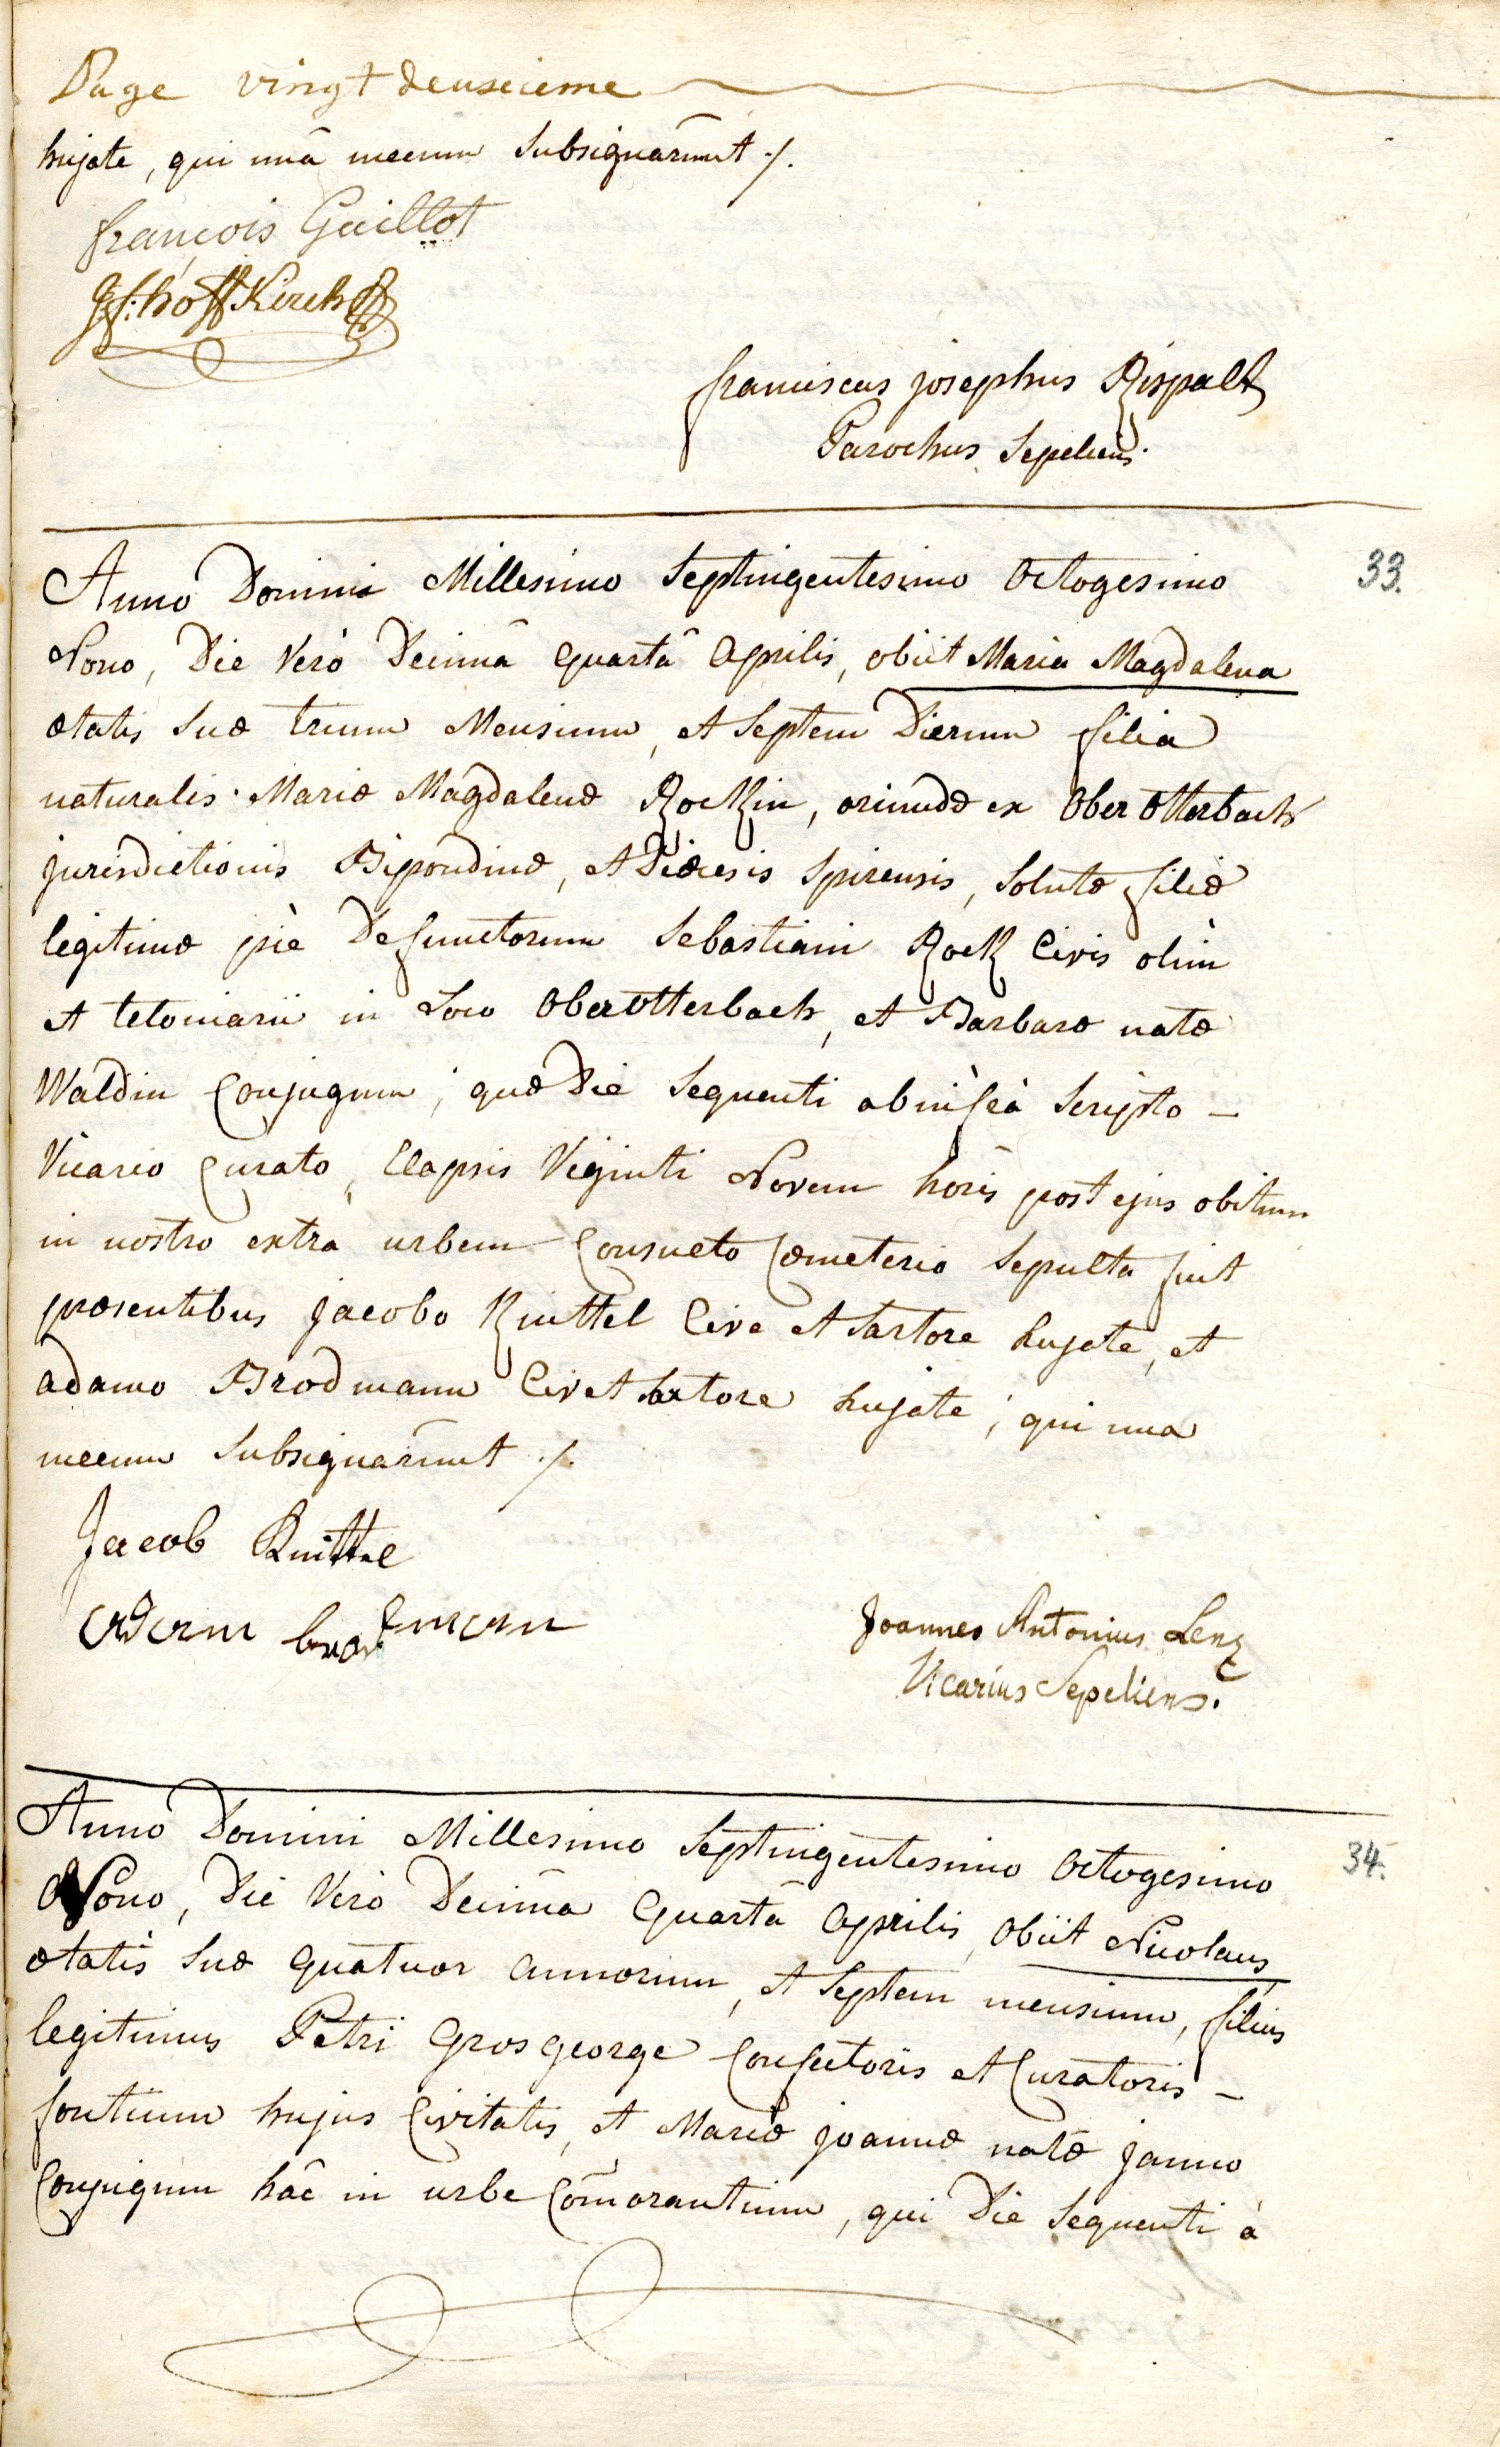 Page vingt deuxieme
hujate, qui unâ mecum Subsignarunt ./.
françois Guillot
franciscus josephus Rispalt
Parochus Sepeliens.
33.
Anno Domini Millesimo Septingentesimo Octogesimo
Nono, Die Verò Decimâ quartâ aprilis, obiit Maria Magdalena
ætatis Suæ trium Mensium, et Septem Dierum filia
naturalis Mariæ Magdalenæ Rockin, oriundæ ex Ober Otterbach
jurisdictionis Bipondinæ, et Diœcesis Spirensis, Solutæ filiæ
legitimæ piè Defunctorum Sebastiani Rock Civis olim
et teloniarii in Loco Oberotterbach, et Barbaræ natæ
Waldin Conjugum; quæ Die Sequenti ab infra Scripto -
Vicario Curato, Elapsis Viginti Novem horis post ejus obitum
in nostro extra urbem Consueto Cœmeterio Sepulta fuit
præsentibus Jacobo Knittel Cive et Sartore hujate, et
adamo Brodmann Civ et Sartore hujate; qui una
mecum Subsignarunt ./.
Jacob Knittel
Adam brodman
Joannes Antonius Lenz
Vicarius Sepeliens.
34.
Anno Domini Millesimo Septingentesimo Octogesimo
Nono, Die Vero Decimâ Quartâ aprilis, Obiit Nicolaus
ætatis Suæ quatuor annorum, et Septem mensium, filius
legitimus Petri Grosgeorge Confectoris et Curatoris -
fontium hujus Civitatis, et Mariæ joannæ natæ Janno
Conjugum hâc in urbe Com̄orantium, qui Die Sequenti à